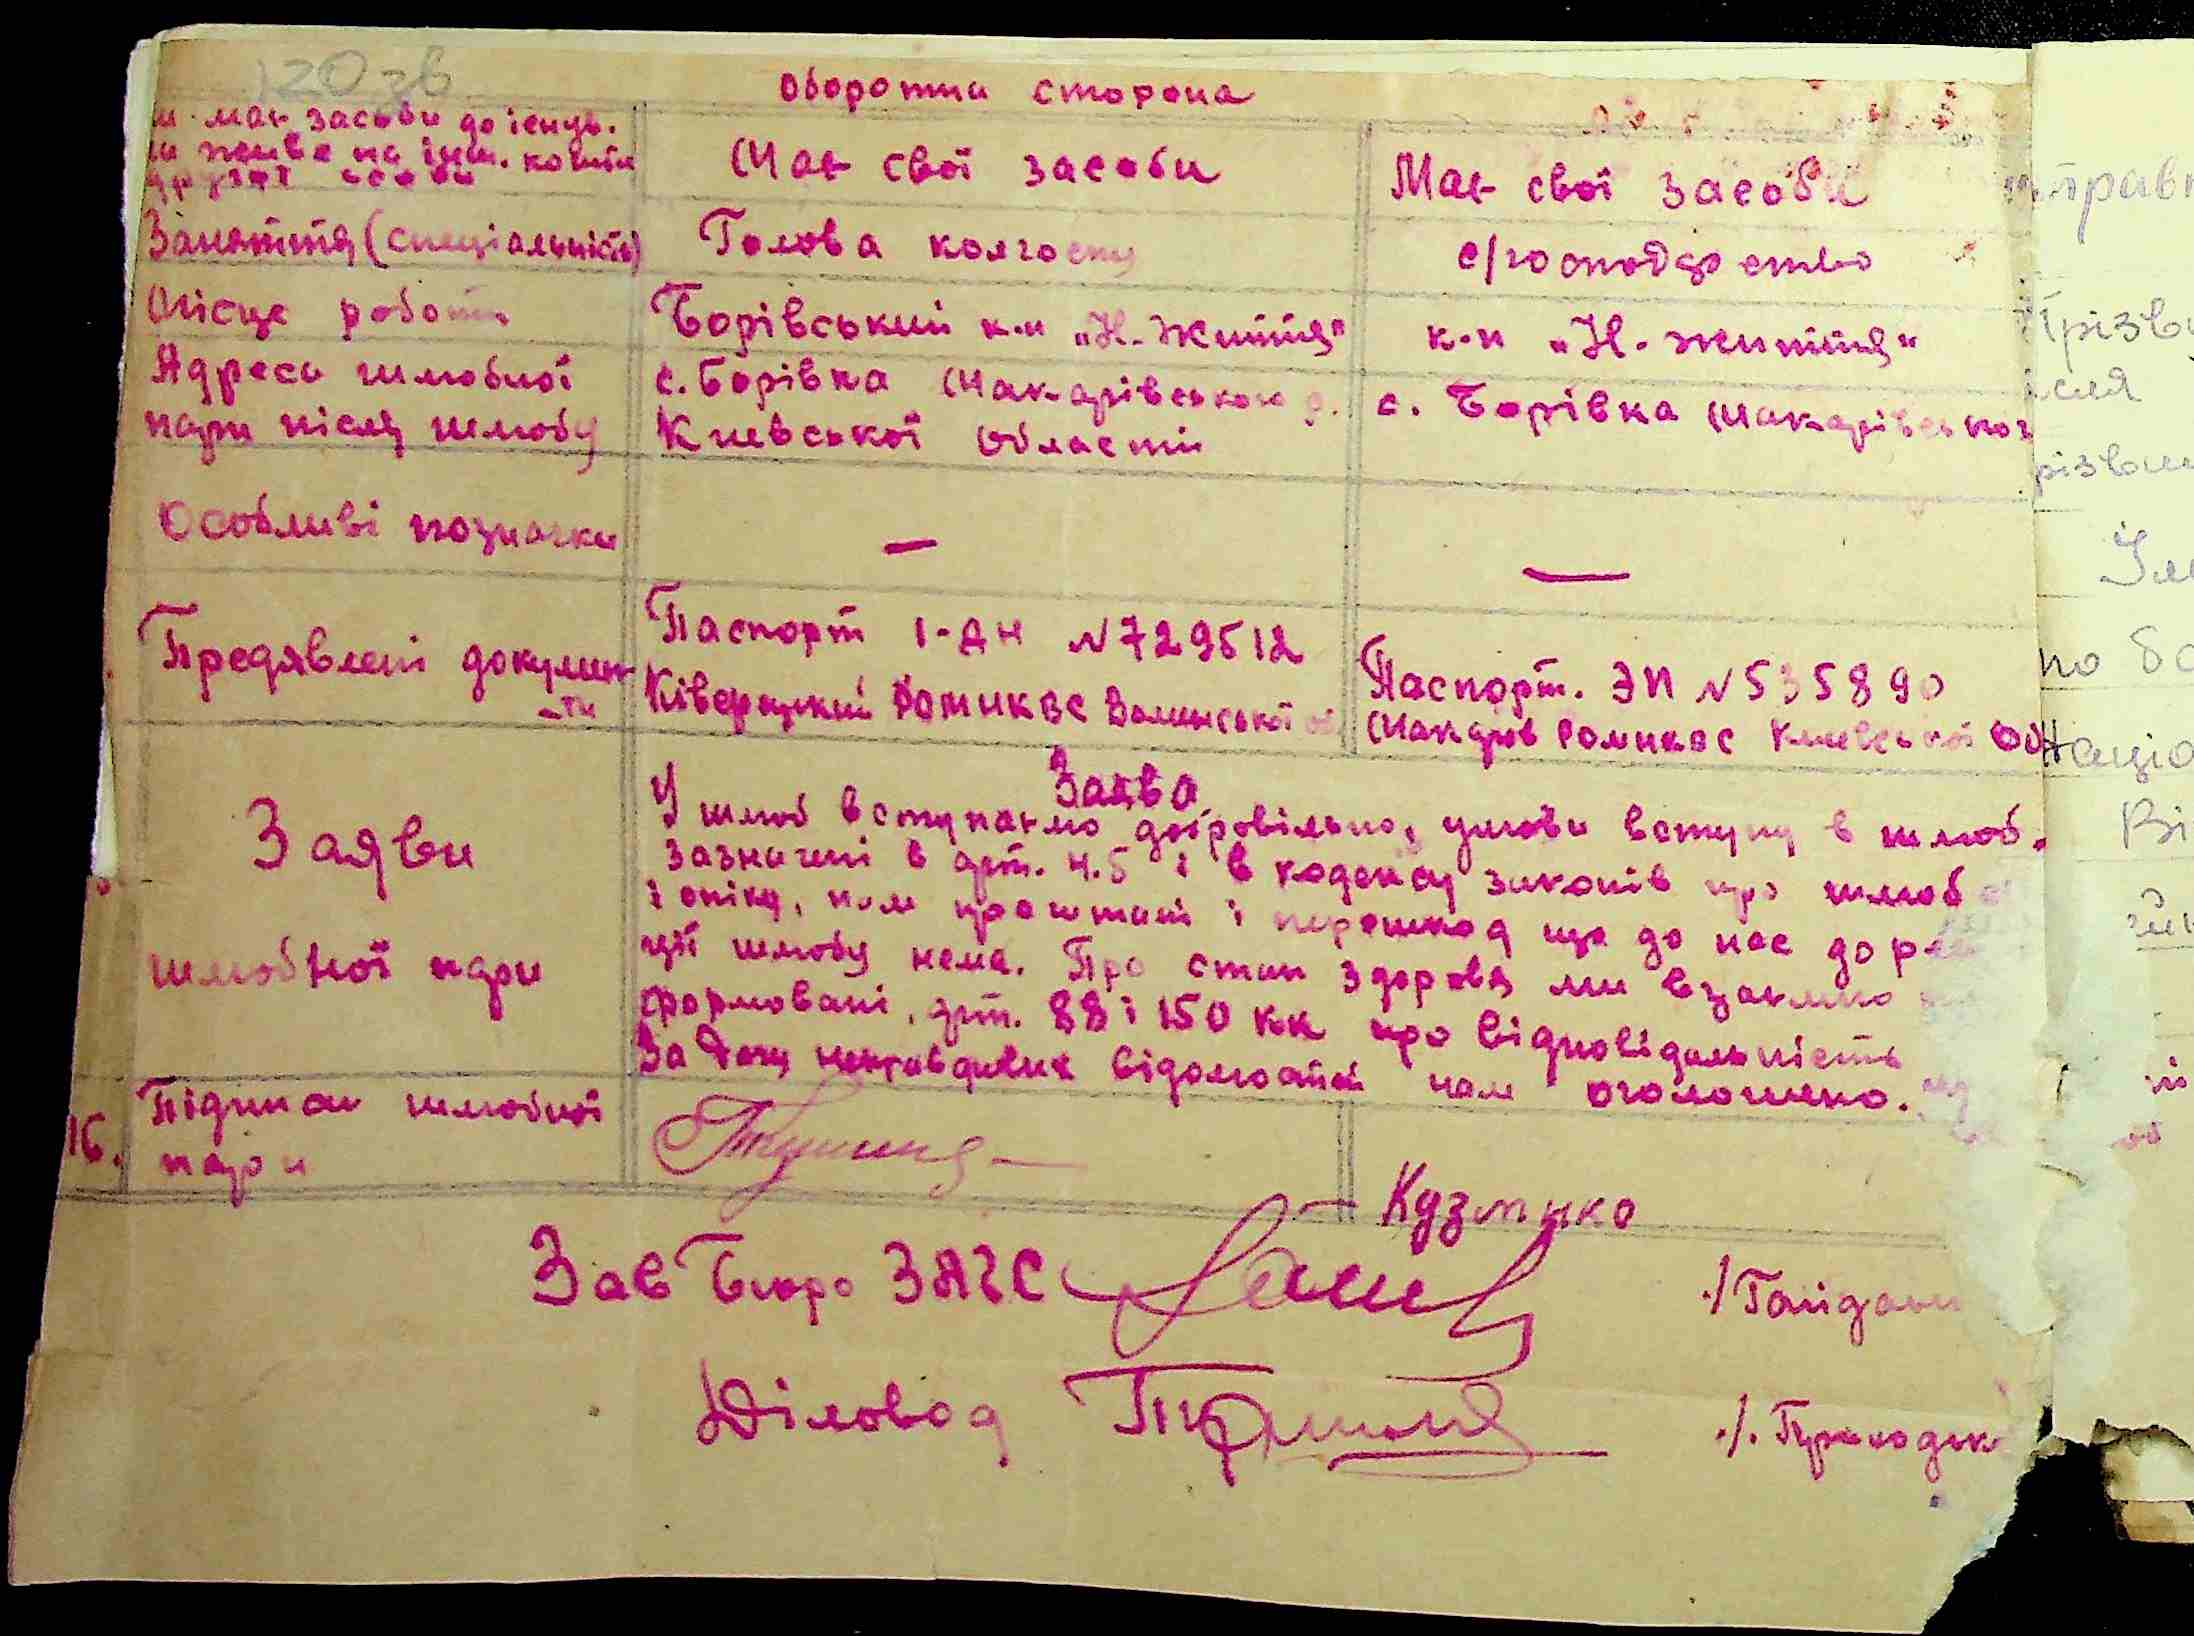 120 зв
Оборотна сторона
має засоби до існув.
живе на інш. кошти
другої особи
Має свої засоби
Має свої засоби
Заняття (спеціальність)
Голова колгоспу
с/господарство
Місце роботи
Борівський к-п „Н-Життя"
к-п „Н-життя"
Адреса шлюбної
пари після шлюбу
с. Борівка Макарівського р.
Київської области
с. Борівка Макарівськог
Особливі позначки
—
—
Предявлені докумен
-ти
Паспорт I-ДН N729512
Ківерцький РОМНКВС Волинської об
Паспорт. ЭП N535890
Макарів Ромнквс Киевської Об
Заяви
шлюбної пари
Заява
У шлюб вступаємо добровільно, умови вступу в шлюб.
зазначені в арт. 4.5 і в кодексу законів про шлюб
і опіку, нам прочитані і перешкод що до нас до ре
ції шлюбу нема. Про стан здоровя ми взаємно
формовані, арт. 88 і 150 КК про відповідальність
За дачу неправдивих відомостей нам оголошено.
16.
Підписи шлюбної
пари
Кузменко
Зав Бюро ЗАГС
/Гайдам
Діловод
/. Приходьк
прав
Прізв
ісля
різвищ
по ба
Націо
Ві